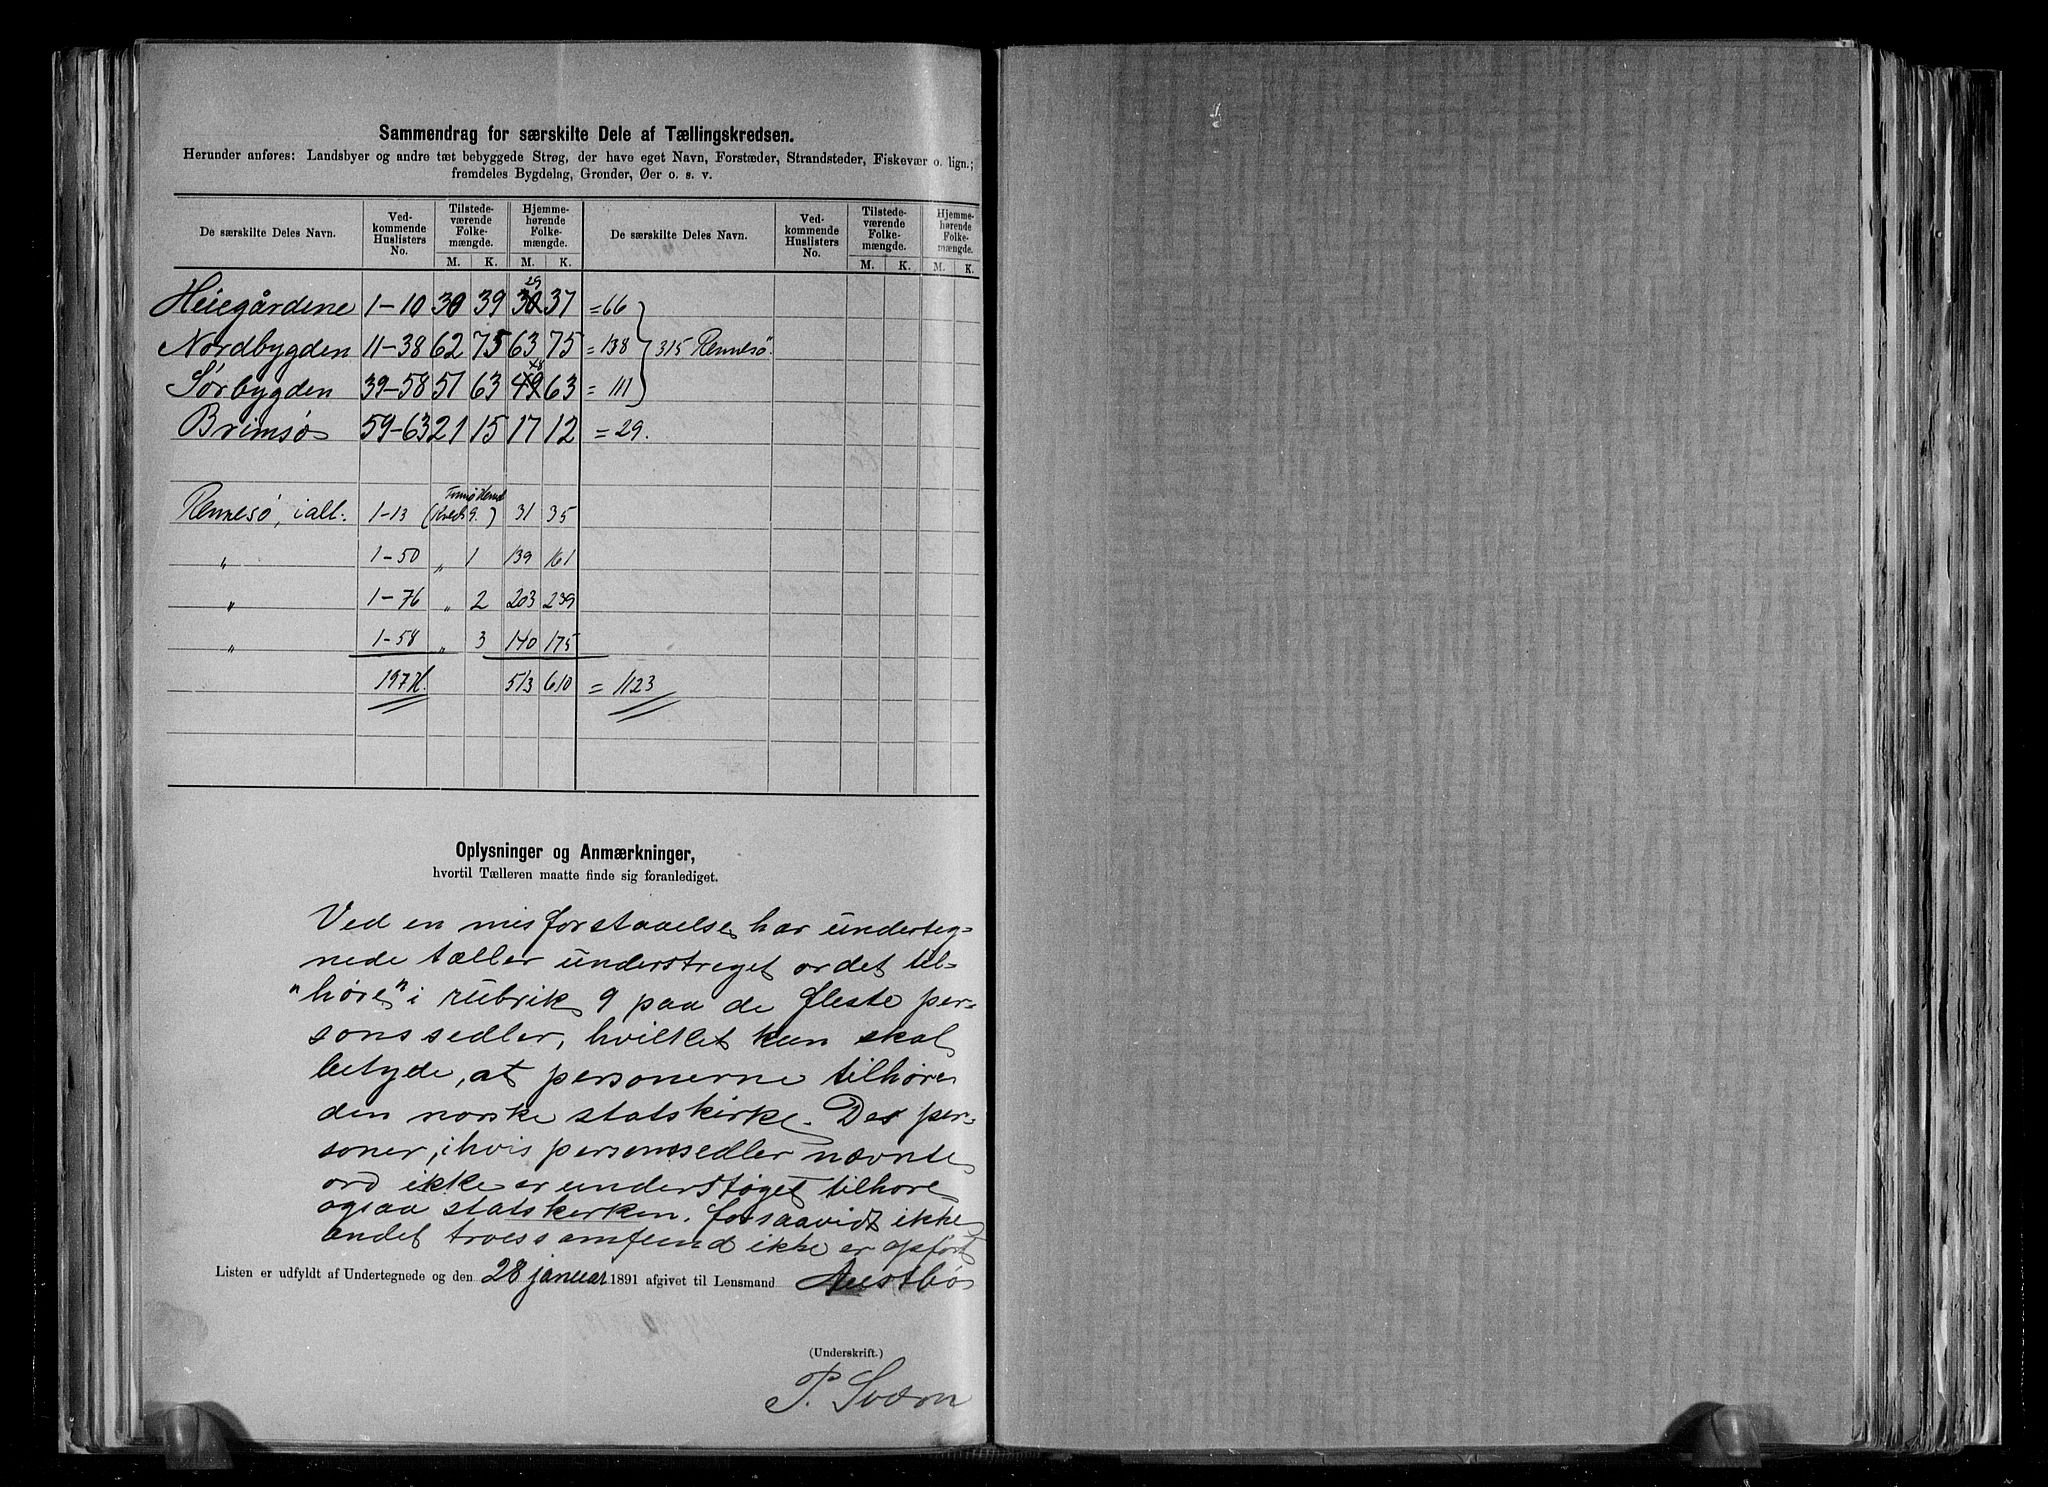 Sammendrag for særskilte Dele af Tællingskredsen.
Herunder anføres: Landsbyer og andre tæt bebyggede Strøg, der have eget Navn, Forstæder, Strandsteder, Fiskevær o. lign.;
fremdeles Bygdelag, Grender, Øer o. s. v.
De særskilte Deles Navn. Ved-kommende Huslisters No. Tilstede-værende Folke-mængde. Hjemme-hørende Folke-mængde. De særskilte Deles Navn. Ved-kommende Huslisters No. Tilstede-værende Folke-mængde. Hjemme-hørende Folke-mængde.
M. K. M. K. M. K. M. K.
29
Heiegårdene 1-10 30 39 30 37 = 66
Nordbygden 11-38 62 75 63 75 = 138 315 Rennesö.
48
Sørbygden 39-58 51 63 49 63 = 111
Brimsø 59-63 21 15 17 12 = 29.
Rennesö, ialt: 1-13 (Kreds 9.) 31 35
" 1-50 " 1 139 161
" 1-76 " 2 203 239
" 1-58 " 3 140 175
197 H. 513 610 = 1123
Oplysninger og Anmærkninger,
hvortil Tælleren maatte finde sig foranlediget.
Ved en misforstaaelse har underteg-
nede tæller understreget ordet til-
"høre" i rubrik 9 paa de fleste per-
sonssedler, hvilket kun skal
betyde, at personerne tilhøre
den norske statskirke. De per-
soner, i hvis personssedler nævnte
ord ikke er understøget tilhøre
ogsaa statskirken, forsaavidt ikke
andet troessamfund ikke er opført
Listen er udfyldt af Undertegnede og den 28 januar 1891 afgivet til Lensmand Austbø
(Underskrift.)
P. Sværn